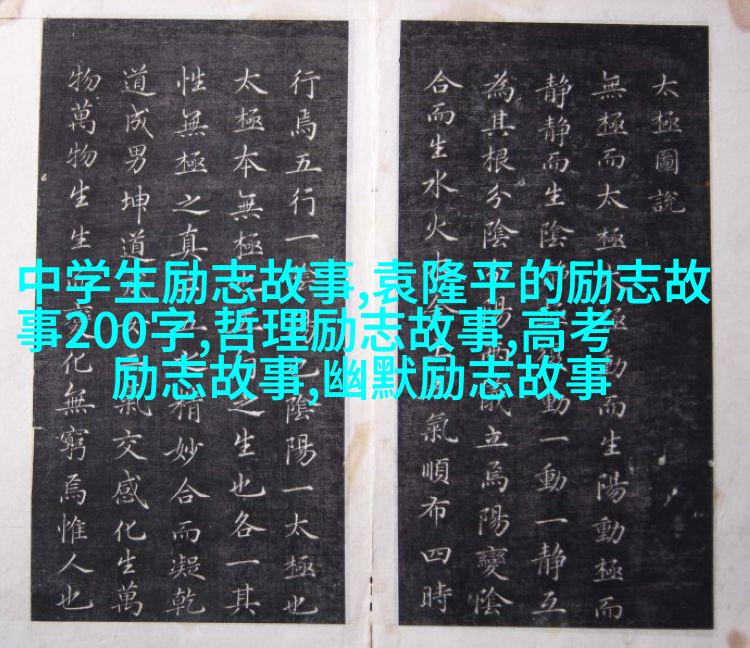 太極圖說
無極而太極極動而生陽動極而
靜靜而生陰靜動一動一靜互
為其根分陰陽立焉陽變陰
合而生水火氣順布四時
行焉五行一陰陽一太極也
太極本無極之生也各一其
性無極之真五精妙合而凝乾
道成男坤道氣交感化生萬
物萬物生生變化無窮焉惟人也
中学生励志故事,袁隆平的励志故
事200字,哲理励志故事,高考
励志故事,幽默励志故事